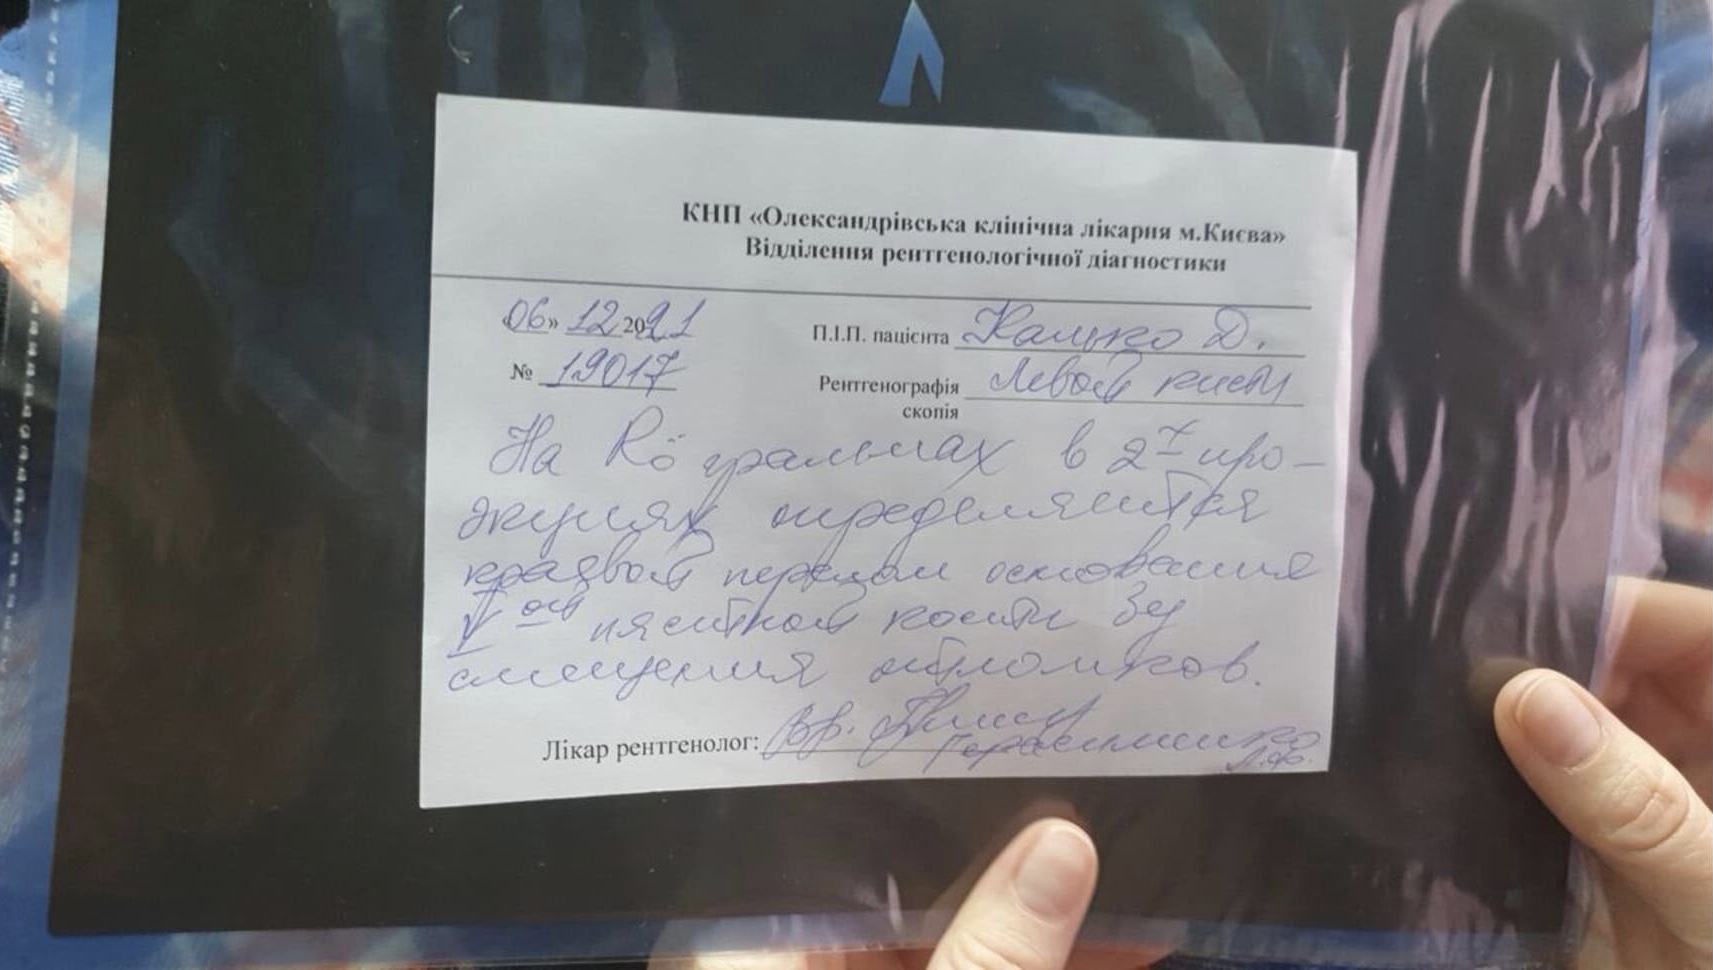 КНП «Олександрівська клінічна лікарня м.Києва»
Відділення рентгенологічної діагностики
«06» 12 2021
П.І.П. пацієнта Калько Д.
№ 19017
Рентгенографія левой кисти
скопія
На Rö граммах в 2х про-
экциях определяется
краевой перелом основания
V ой пястной кости
смещения обломков.
Лікар рентгенолог: Вр.
Герасименко